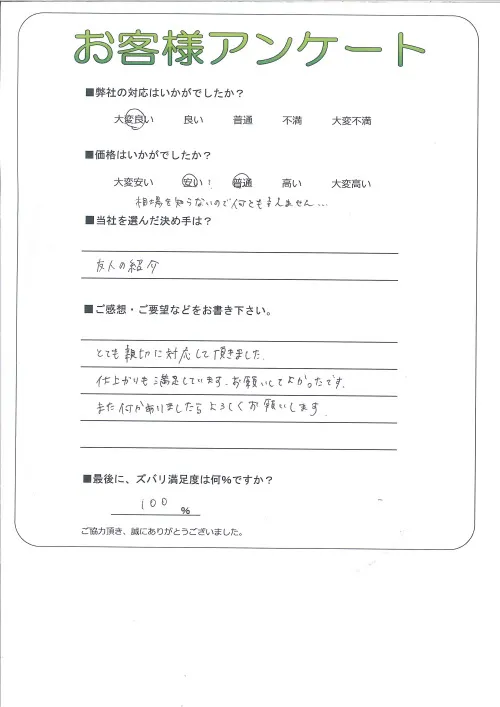 お客様アンケート
■弊社の対応はいかがでしたか？
大変良い 良い 普通 不満 大変不満
■価格はいかがでしたか？
大変安い 安い！ 普通 高い 大変高い
相場を知らないので何とも言えません...
■当社を選んだ決め手は？
友人の紹介
■ご感想・ご要望などをお書き下さい。
とても親切に対応して頂きました。
仕上がりも満足しています。お願いしてよかったです。
また何かありましたらよろしくお願いします
■最後に、ズバリ満足度は何％ですか？
100 %
ご協力頂き、誠にありがとうございました。